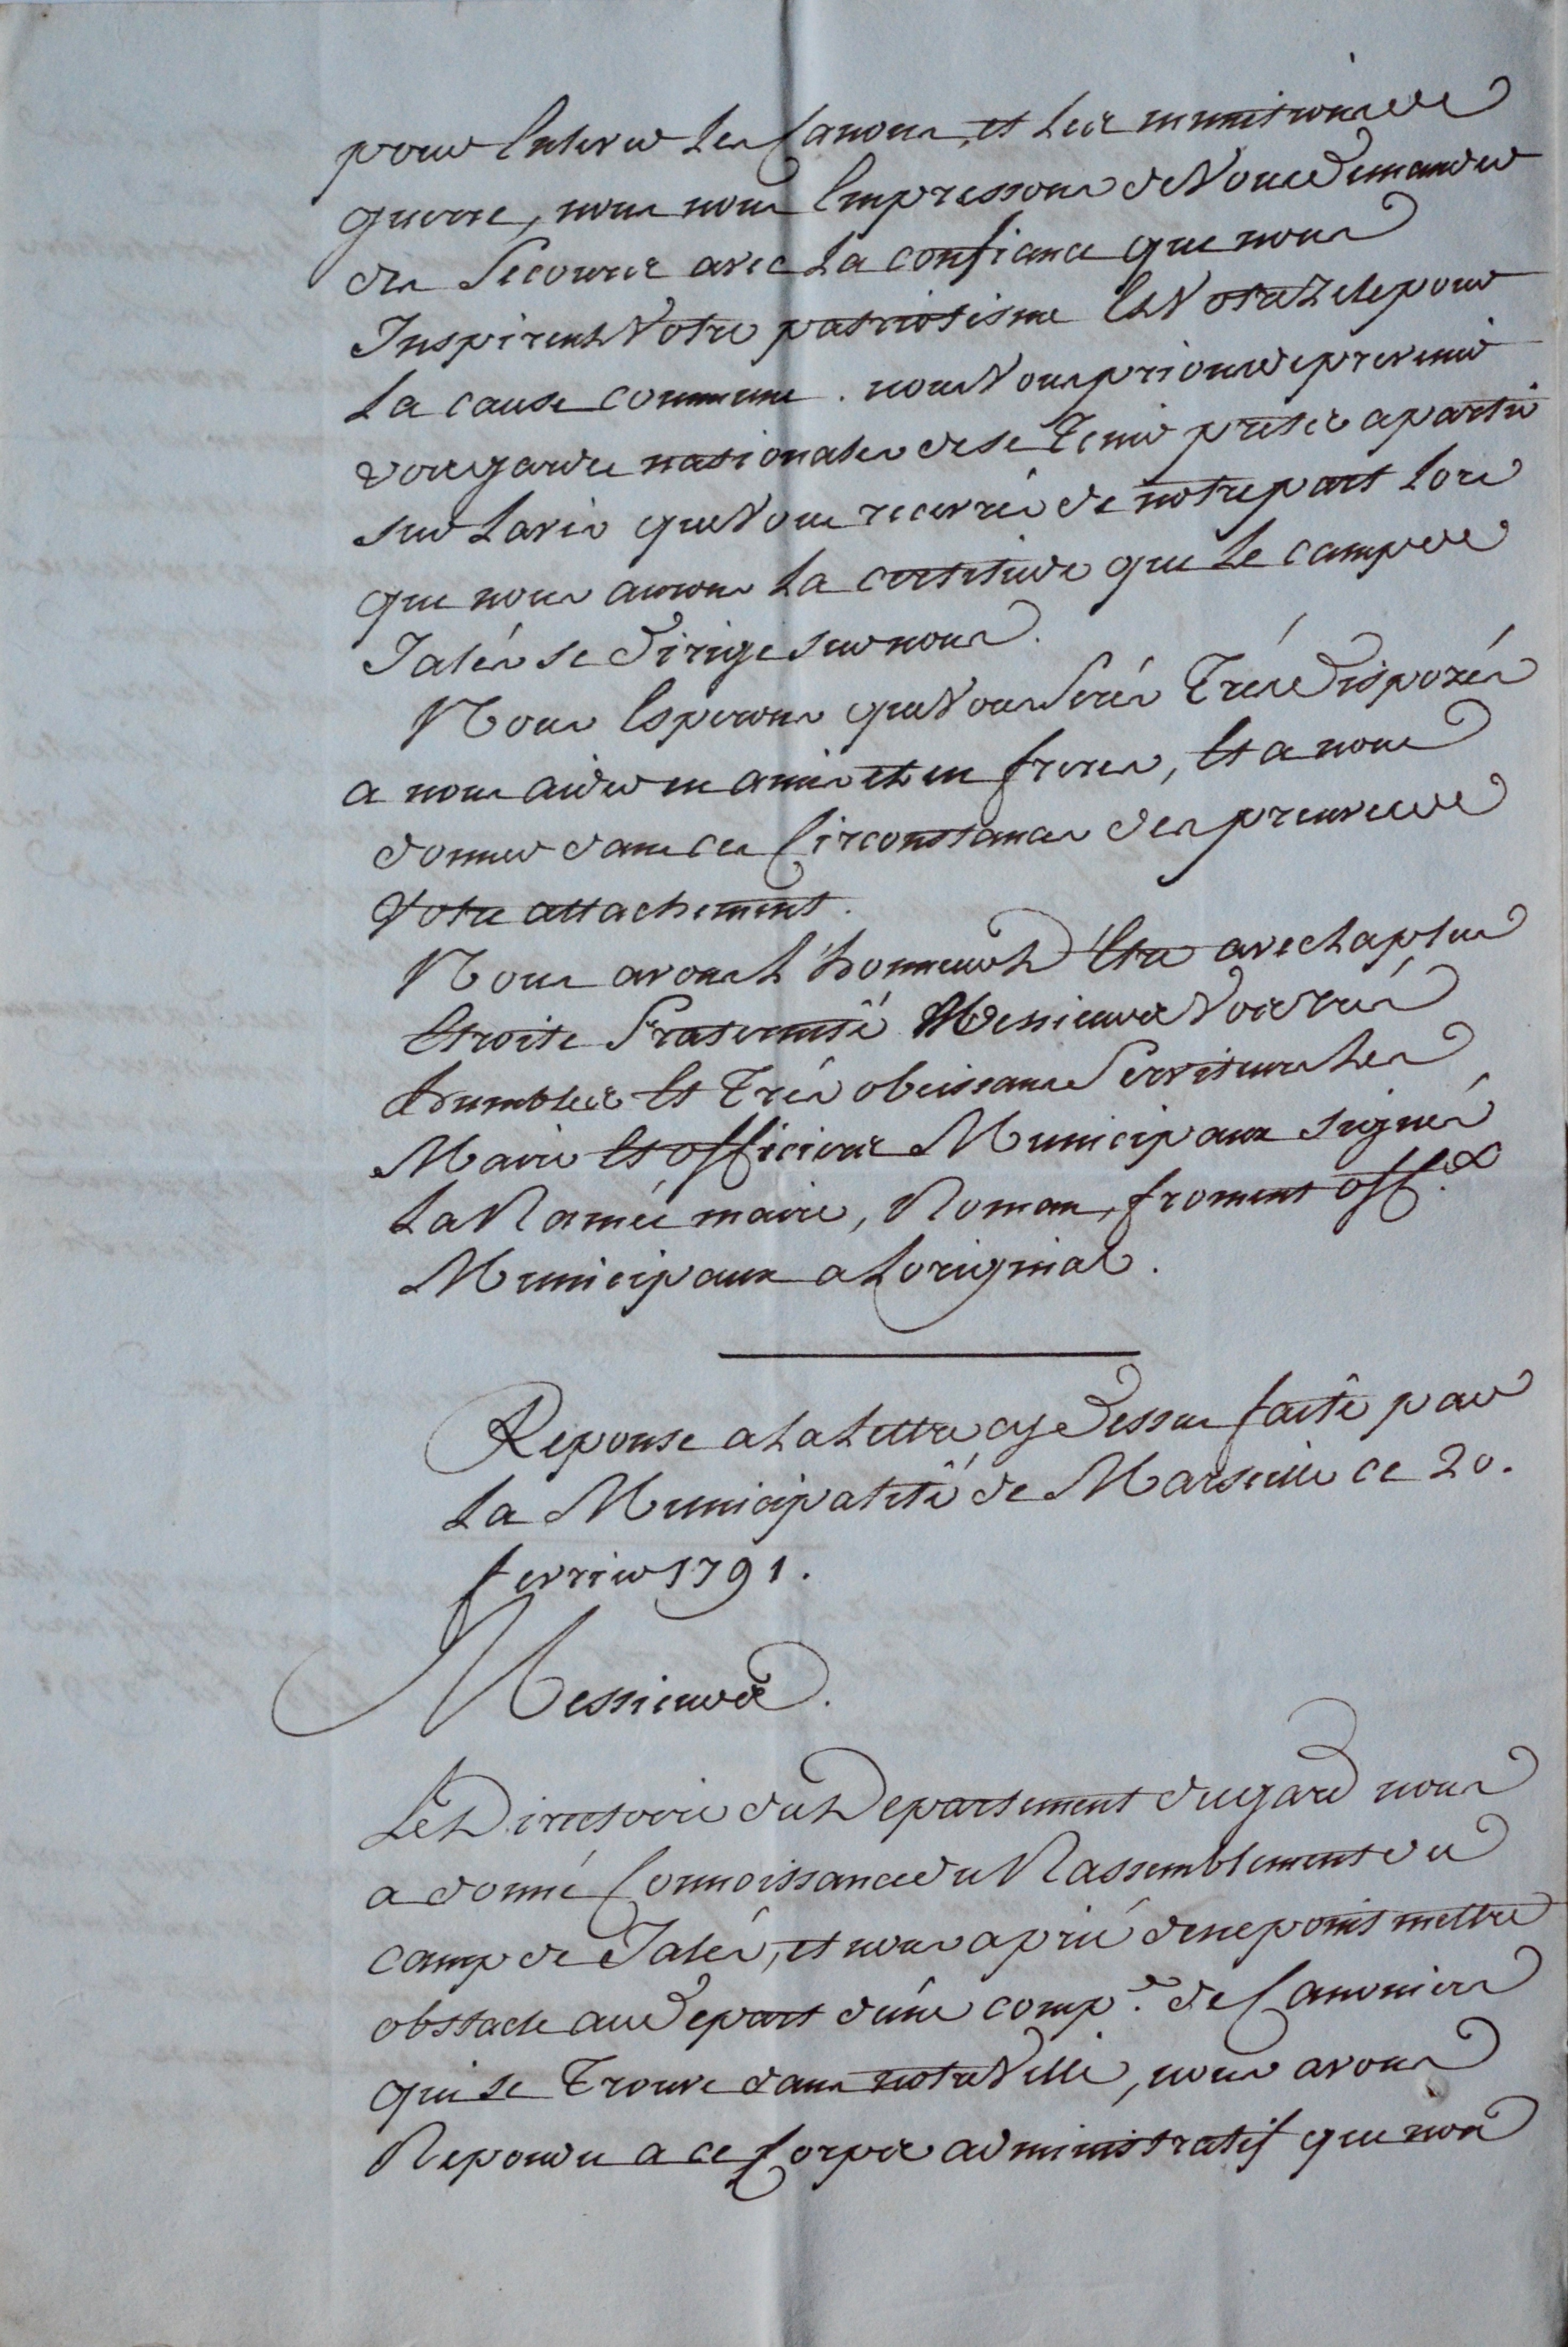 pour Enlever les Canons, et les munitions de
guerre, nous nous Empressons de Vous Demander
des Secours avec La confiance que nous
Inspirent Votre patriotisme Et Votre Zele pour
La cause commune. nous Vous prions de prevenir
vos gardes nationales de se Tenir prets a partir
sur Lavis que Vous recevrés de notre part Lors
que nous aurons La certitude que Le camp de
Jalés se Dirige sur nous.
Nous Esperons que Vous Serés Trés Disposés
a nous aider en amis et en freres, Et a nous
donner dans ces Circonstances des preuves de
Votre attachement.
Nous avons L'honneur D'Etre avec La plus
Etroite Fraternité Messieurs Vos trés
humbles Et Trés obeissans Serviteurs Les
Maire Et officiers Municipaux signés
La Ramée maire, Roman, froment off.rs
Municipaux a Loriginal.
Reponse a La Lettre cy Dessus faite par
La Municipalité de Marseille ce 20.
fevrier 1791.
Messieurs.
Le Directoire du Departement du gard nous
a donné Connoissance du Rassemblement du
camp de Jalés, et nous a prié de ne point mettre
obstacle au Depart d'une comp.e de Canoniers
qui se Trouve dans notre Ville, nous avons
Repondu a ce Corps administratif que non